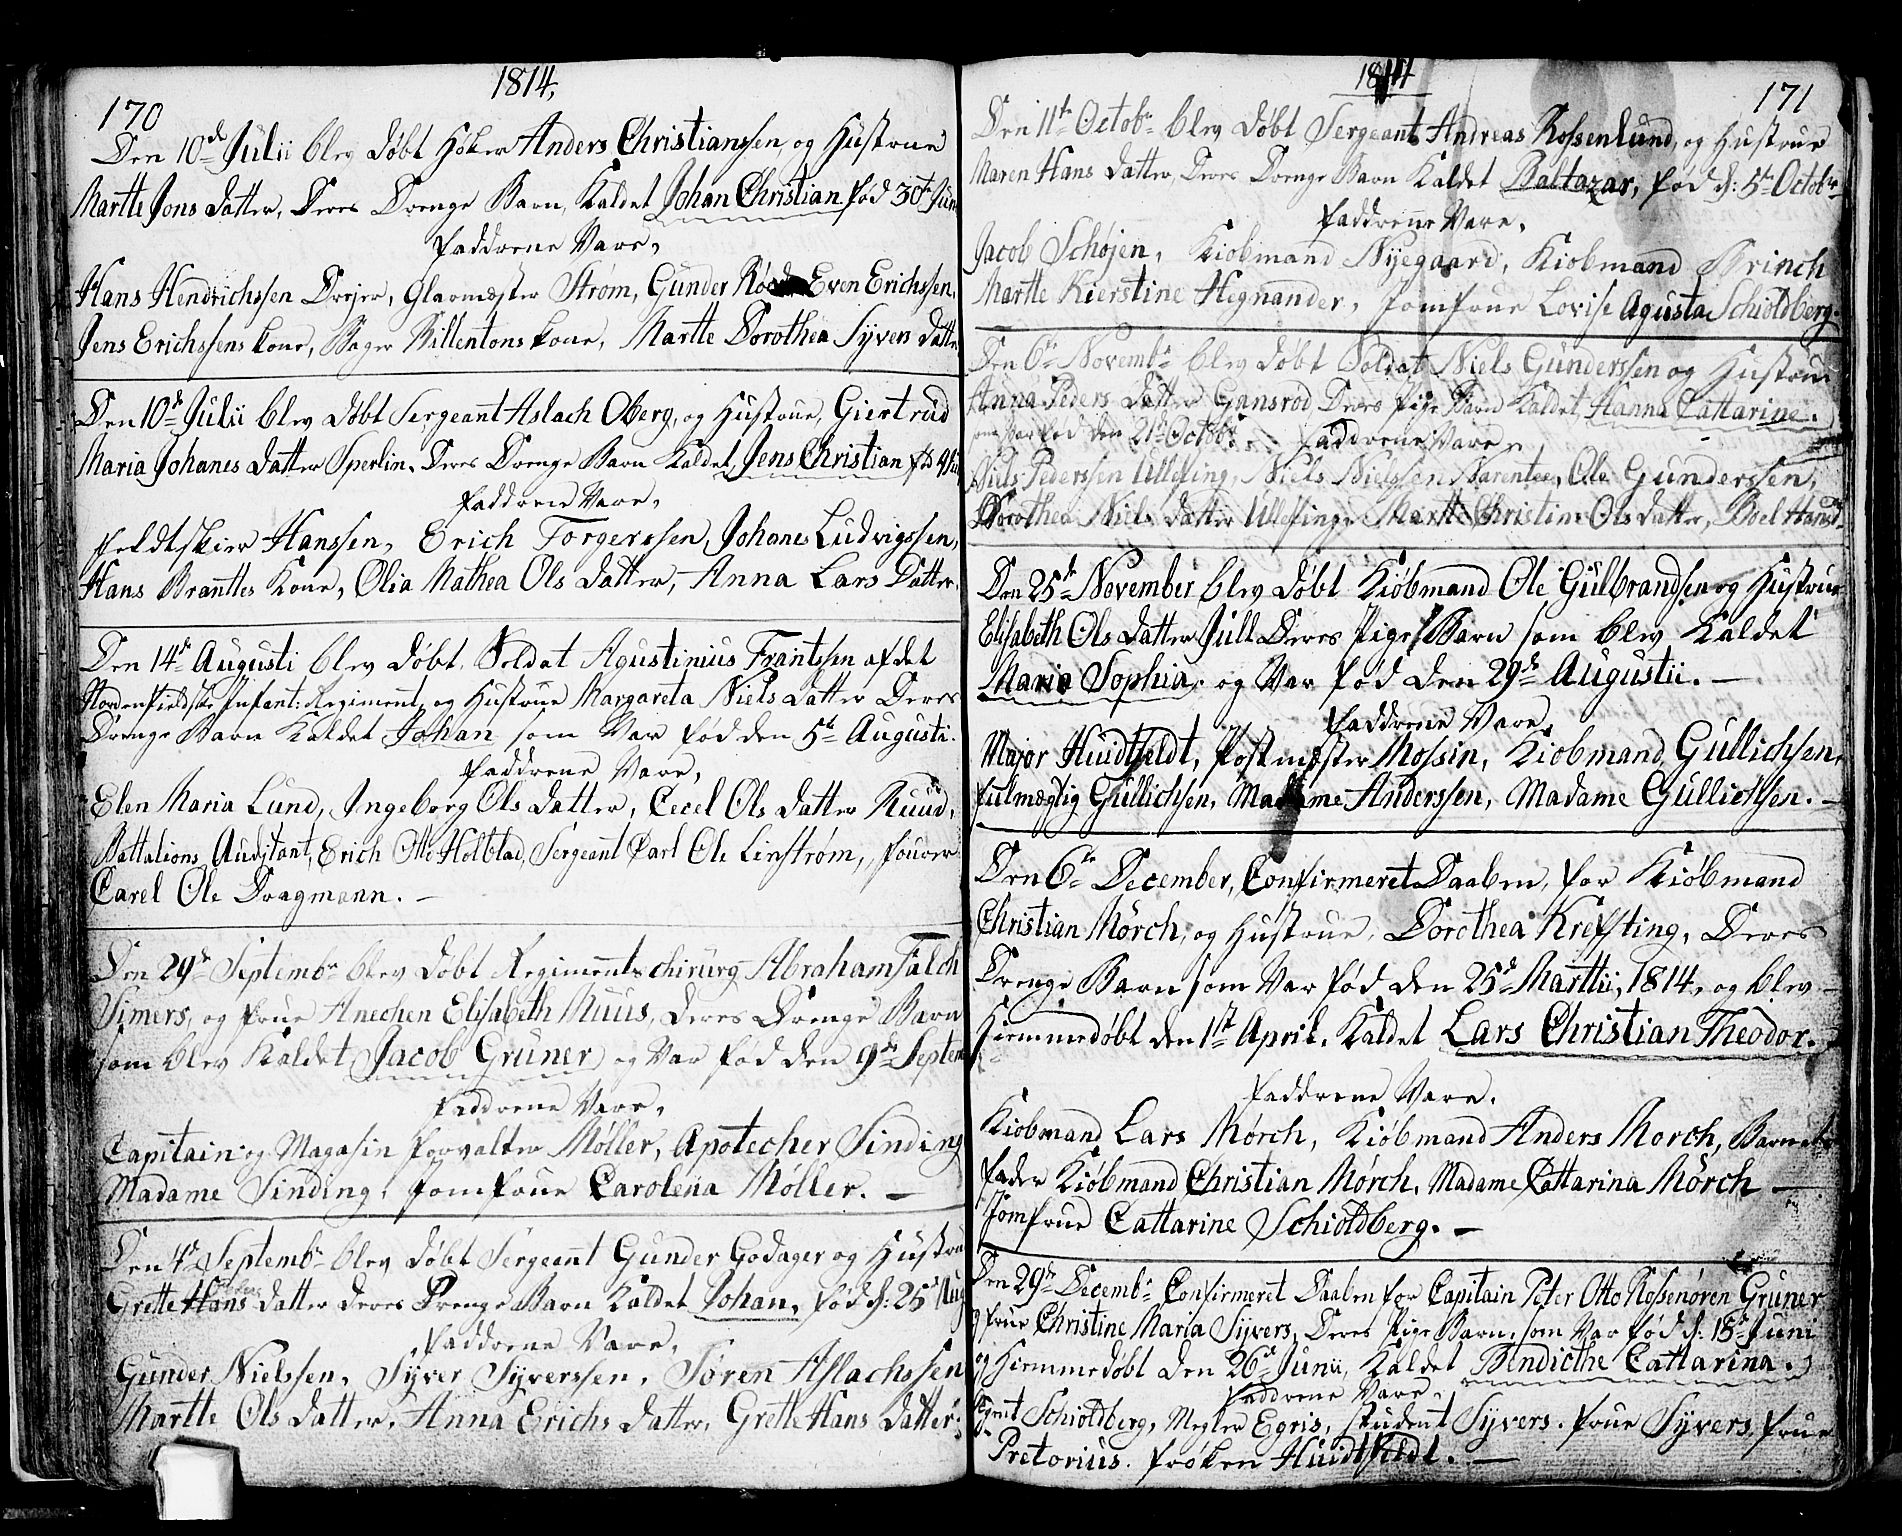 1814,
170
Den 10de Julii blev døbt Høker Anders Christianssen, og Hustrue
Martte Jons Datter, Deres Drenge Barn, Kaldet Johan Christian fød 30t Jun
Faddrene Vare,
Hans Hendrichssen Drejer, Glarmæster Strøm, Gunder Even Erichssen,
Jens Erichssens kone, Bager Billentons kone, Martte Dorothea Syvers Datte
Den 10de Julii blev døbt Sergeannt Aslach Oberg, og Hustrue, Giertrud
Maria Johanes Datter Sperlin. Deres Drenge Barn Kaldet, Jens Christian
Faddren Vare,
Feldtskier Hanssen, Erich Torgerssen, Johanes Ludvigssen,
Hans Branttes Kone, Olia Mathea Ols Datter, Anna Lars Datter.
Den 14de Augusti blev døbt, Soldat Agustinius Frantssen af det
Nordenfieldske Infant: Regiment, og Hustrue Margareta Niels Datter Deres
Drenge Barn Kaldet Johan som Var fød den 5te Augusti.
Faddrene Vare,
Elen Maria Lund, Ingeborg Ols Datter, Cecel Ols Datter Ruud,
Battalions Audjtant, Erich Otte Holblad, Sergeant Carl Ole Linstrøm, Fourer
Carel Ole Dragmann. —
Den 29de Septembr blev døbt Regiments chirurg Abraham Falch
Simers, og Frue Anechen Elisabeth Muus, Deres Drenge Barn
som blev Kaldet Jacob Gruner og Var fød den 9de Septem
Faddrene Vare,
Capitain og Magasin Forvalter Møller, Apotecher Sinding
Madame Sinding, Jomfrue Carolena Møller. —
Den 4de Septembr blev døbt Sergeannt Gunder Godager og Hustrue
Grette Hans Datter deres Drenge Barn Kaldet Johan, fød d: 25de Aug
Faddrene Vare,
Gunder Nielssen, Syver Syverssen, Søren Aslachssen
Martte Ols Datter, Anna Erichs Datter, Grette Hans Datter.
1814
171
Den 11te Octobr blev døbt Sergeant Andreas Rossenlund, og Hustrue
Maren Hans Datter, Deres Drenge Barn Kaldet Baltazar, fød d: 5te Octobr
Faddrenne Vare,
Jacob Schøjen, Kiøbmand Nyegaard, Kiøbmand Brinch
Martte Kierstine Hegnander, Jomfrue Lovise Agusta Schiøldberg.
Den 6te Novembr blev døbt Soldat Niels Gunderssen og Hustrue
Anna Peders Datter Gansrød, Deres Pige Barn Kaldet, Hanna Cattarine.
som Var fød den 21de Octobr. Faddrene Vare,
Niels Pederssen Ulleffing, Niels Nielssen Ole Gunderssen,
Dorothea Niels Datter Ulleffing, Martte Christine Ols Datter, Boel Hans D.
Den 25de November blev døbt Kiøbmand Ole Gulbrandsen og Hustrue
Elisabeth Ols Datter Jull Deres Pige Barn som blev Kaldet
Maria Sophia, og Var fød den 29de Augustii. —
Faddrene Vare,
Major Huidtfeldt, Postmæster Mossin, Kiøbmand Gullichsen,
Fulmægtig Gullichsen, Madame Anderssen, Madame Gullichsen. —
Den 6te December, Confirmeret Daaben, for Kiøbmand
Christian Mørch, og Hustrue, Dorothea Krefting, Deres
Drenge Barn som Var fød den 25de Marttii, 1814, og blev
Hiemmedøbt den 1ste April. Kaldet Lars Christian Theodor.
Faddrene Vare,
Kiøbmand Lars Mørch, Kiøbmand Anders Mørch, Barnets
Fader Kiøbmand Christian Mørch, Madame Cattarina Mørch —
Jomfrue Cattarine Schiøldberg. —
Den 29de Decembr Confirmeret Daaben for Capitain Peter Otto Rossenøren Gruner
og Frue Christine Maria Syvers, Deres Pige Barn, som Var fød d: 15de Juni
og Hiemmedøbt den 26de Junii, Kaldet Bendicthe Cattarina.
Faddrene Vare,
Agent Schiøldberg, Megler Egris, Student Syvers. Frue Syvers, Frue
Pretorius. Frøken Huidtfeldt. —